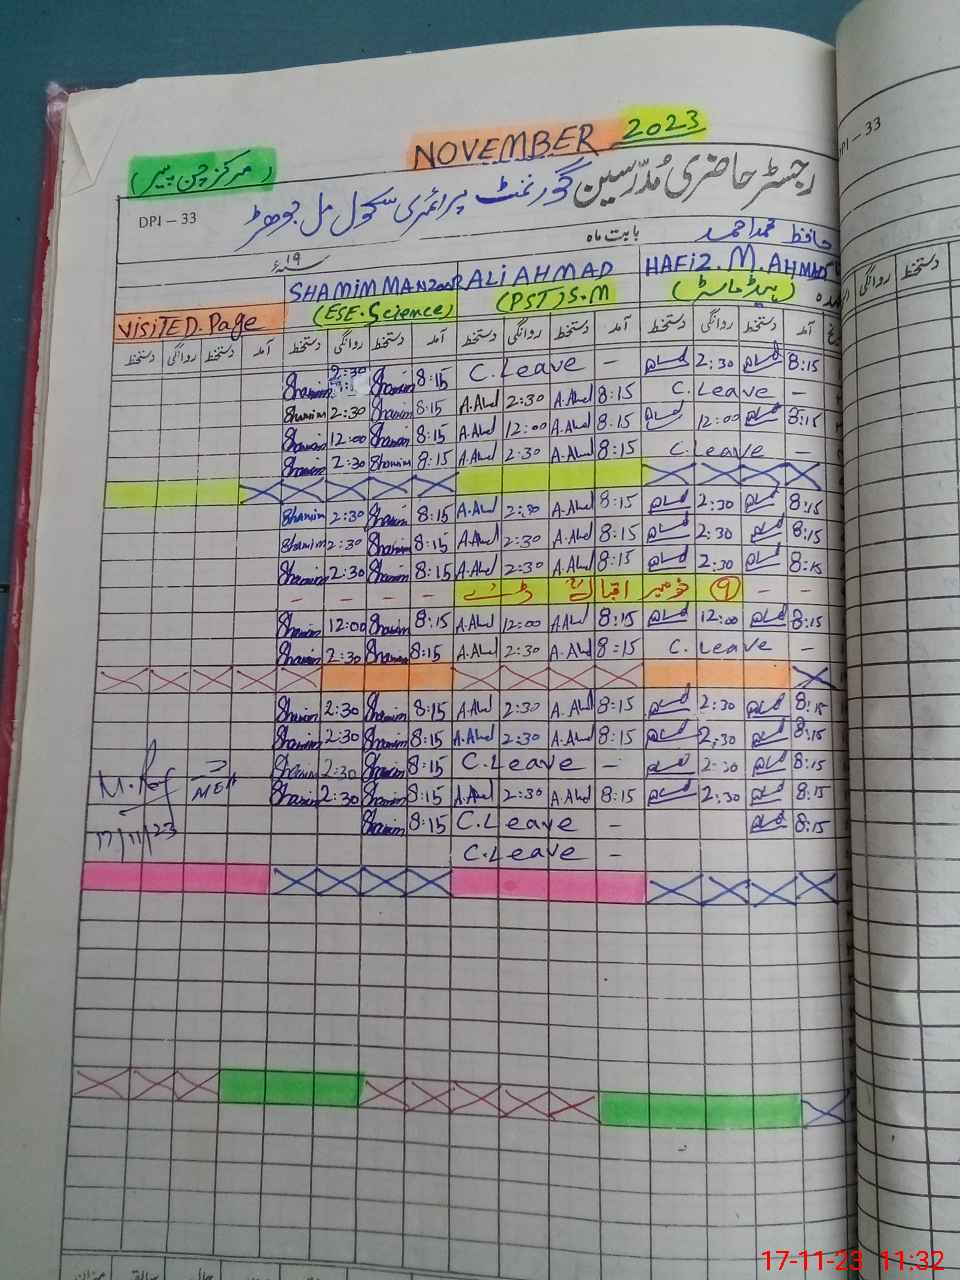 NOVEMBER 2023
(مرکز چن پیر)
رجسٹر حاضری مدرسین گورنمنٹ پرائمری سکول مل جوھڑ
DPI – 33
DPI – 33
بابت ماہ حافظ محمد احمد
۱۹ سنہء
SHAMIM MANZOOR ALI AHMAD HAFIZ. M. AHMAD
VISITED. Page (ESE. Science) (PST) S.M (ہیڈ ماسٹر)
آمد دستخط روانگی دستخط آمد دستخط روانگی دستخط آمد دستخط روانگی دستخط
دستخط روانگی
Shamim 2:30 Shamim 8:15 C. Leave – 2:30 8:15
Shamim 2:30 Shamim 8:15 A.Ahd 2:30 A.Ahd 8:15 C. Leave –
Shamim 12:00 Shamim 8:15 A.Ahd 12:00 A.Ahd 8:15 12:00 8:15
Shamim 2:30 Shamim 8:15 A.Ahd 2:30 A.Ahd 8:15 C. Leave –
Shamim 2:30 Shamim 8:15 A.Ahd 2:30 A.Ahd 8:15 2:30 8:15
Shamim 2:30 Shamim 8:15 A.Ahd 2:30 A.Ahd 8:15 2:30 8:15
Shamim 2:30 Shamim 8:15 A.Ahd 2:30 A.Ahd 8:15 2:30 8:15
– – – – ۹ نومبر اقبال ڈے – –
Shamim 12:00 Shamim 8:15 A.Ahd 12:00 A.Ahd 8:15 12:00 8:15
Shamim 2:30 Shamim 8:15 A.Ahd 2:30 A.Ahd 8:15 C. Leave –
Shamim 2:30 Shamim 8:15 A.Ahd 2:30 A.Ahd 8:15 2:30 8:15
Shamim 2:30 Shamim 8:15 A.Ahd 2:30 A.Ahd 8:15 2:30 8:15
Shamim 2:30 Shamim 8:15 C. Leave – 2:30 8:15
MEA Shamim 2:30 Shamim 8:15 A.Ahd 2:30 A.Ahd 8:15 2:30 8:15
17/11/23 Shamim 8:15 C. Leave – 8:15
C. Leave –
17-11-23 11:32